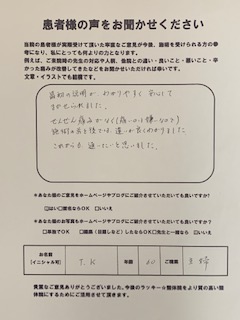 患者様の声をお聞かせください
当院の患者様が実際受けて頂いた率直なご意見が今後、施術を受けられる方の参
考になり、私にとっても何よりの力となります。
例えば、ご来院時の先生の対応や人柄、他院との違い・良いこと・悪いこと・辛
かった痛みが改善してきたなどをお聞かせいただければ幸いです。
文章・イラストでも結構です。
最初の説明がわかりやすく安心して
まかせられました。
ぜんぜん痛みがなく(痛いのは嫌なので)
施術の前と後では、違いが良くわかりました。
これからも通いたいと思いました。
※あなた様のご意見をホームページやブログにご紹介させていただいても良いですか?
□はい □匿名ならOK □いいえ
※あなた様のお写真もホームページやブログにご紹介させていただいても良いですか?
□単独でOK □画像(目隠しなど)したならOK □先生と一緒なら □いいえ
お名前
(イニシャル可)
T.K
年齢
60
ご職業
主婦
貴重なご意見ありがとうございました。今後のラッキー☆整体院をより質の高い整
体院にするためにご活用させて頂きます。